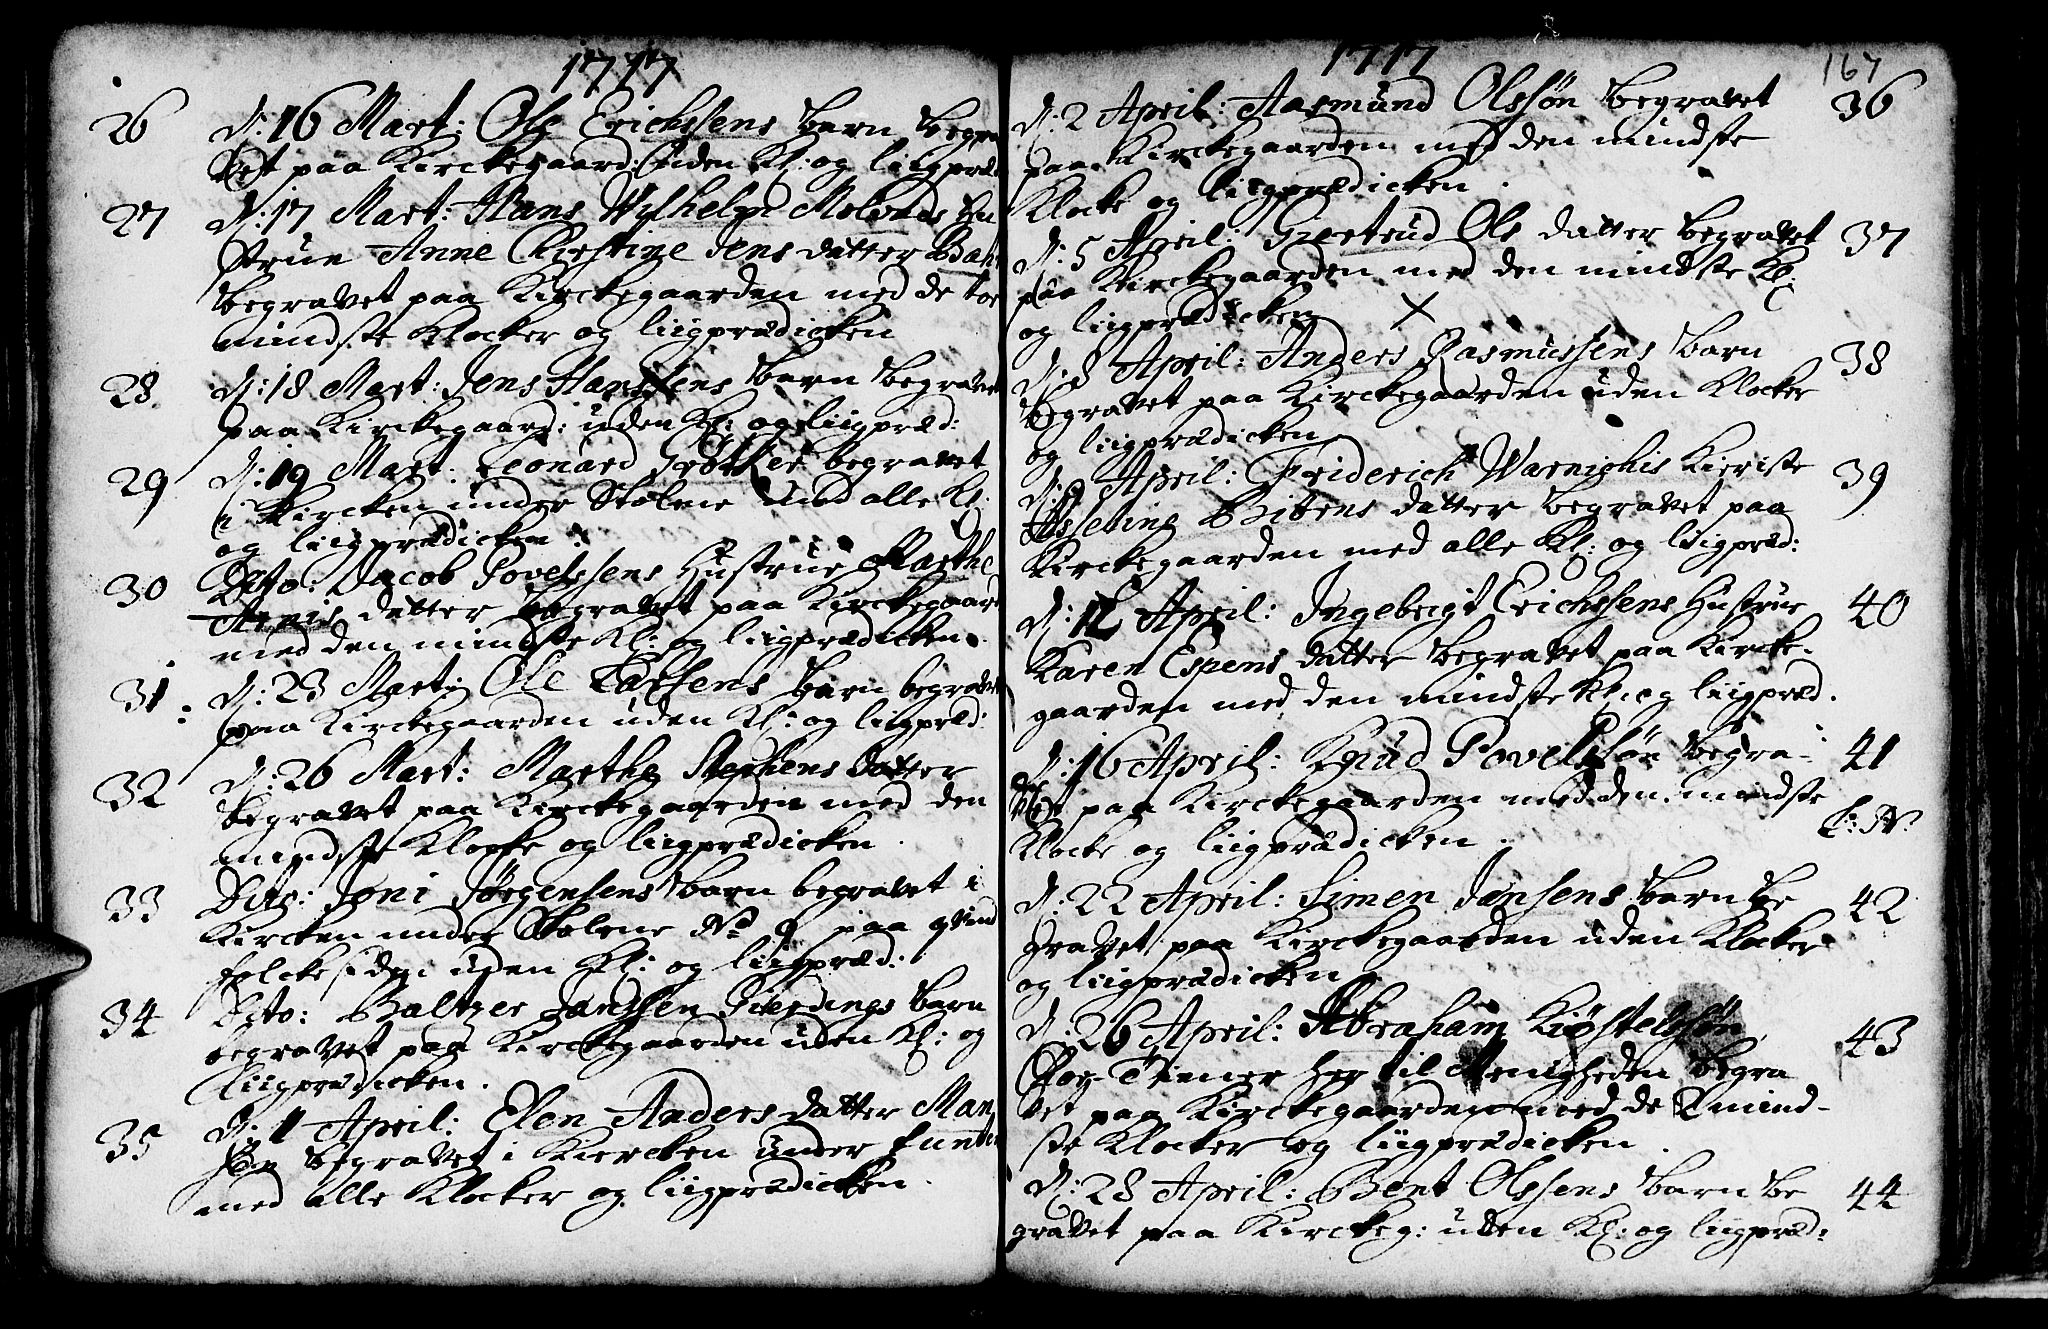 1717
26 D: 16 Mart: Ole Erichssens barn begra
vet paa Kirckegaard: uden Kl: og liigpræd
27 D: 17 Mart: Hans Wilhelm Molvads Hu
strue Anne Chirstine Jens datter
begravet paa Kirckegaarden med de toe
mindste Klocker og liigprædicken
28 D: 18 Mart: Jens Hanssens barn begravet
paa Kirckegaard: uden Kl: og liigpræd:
29 D: 19 Mart: Leonard begravet
i Kircken under Stolene med alle Kl:
og liigprædicken.
30 Dito: Jacob Povelssens Hustrue Marthe
datter begravet paa Kirckegaard
med den mindste Kl: og liigprædicken.
31 D: 23 Mart: Ole Larsens barn begravet
paa Kirckegaarden uden Kl: og liigpræd:
32 D: 26 Mart: Marthe Stephens datter
begravet paa Kirckegaarden med den
mindste Klocke og liigprædicken.
33 Dito: Joni Jørgensens barn begravet i
Kircken under Stolene No 9 paa qvind
folcke siden uden Kl: og liigpræd:
34 Dito: Baltzer Janssen barn
begravet paa Kirckegaarden uden Kl: og
liigprædicken.
35 D: 1 April: Elen Anders datter
begravet i Kiercken under
med alle Klocker og liigprædicken.
1717 167
D: 2 April: Aasmund Olssøn begravet 36
paa Kirckegaarden med den mindste
Klocke og liigprædicken.
D: 5 April: Giertrud Ols datter begravet 37
paa Kirckegaarden med den mindste Kl:
og liigprædicken
D: 8 April: Anders Rasmussens barn 38
begravet paa Kirckegaarden uden Klocker
og liigprædicken
D: 9 April: Friderich Warnighis Kieriste 39
datter begravet paa
Kirckegaarden med alle Kl: og liigpræd:
D: 12 April: Ingebrigt Erichssens Hustrue 40
Karen Espens datter begravet paa Kircke-
gaarden med den mindste Kl: og liigpræd.
D: 16 April: Knud Povelssøn begra- 41
vet paa Kirckegaarden med den mindste
Klocke og liigprædicken.
D: 22 April: Simen Jensens barn be 42
gravet paa Kirckegaarden uden Klocker
og liigprædicken
D: 26 April: Abraham Kiøstelssøn 43
Tiener her til Menigheden begra
vet paa Kirckegaarden med de 2 mind-
ste Klocker og liigprædicken.
D: 28 April: Bent Olssens barn be 44
gravet paa Kirckeg: uden Kl: og liigpræd: